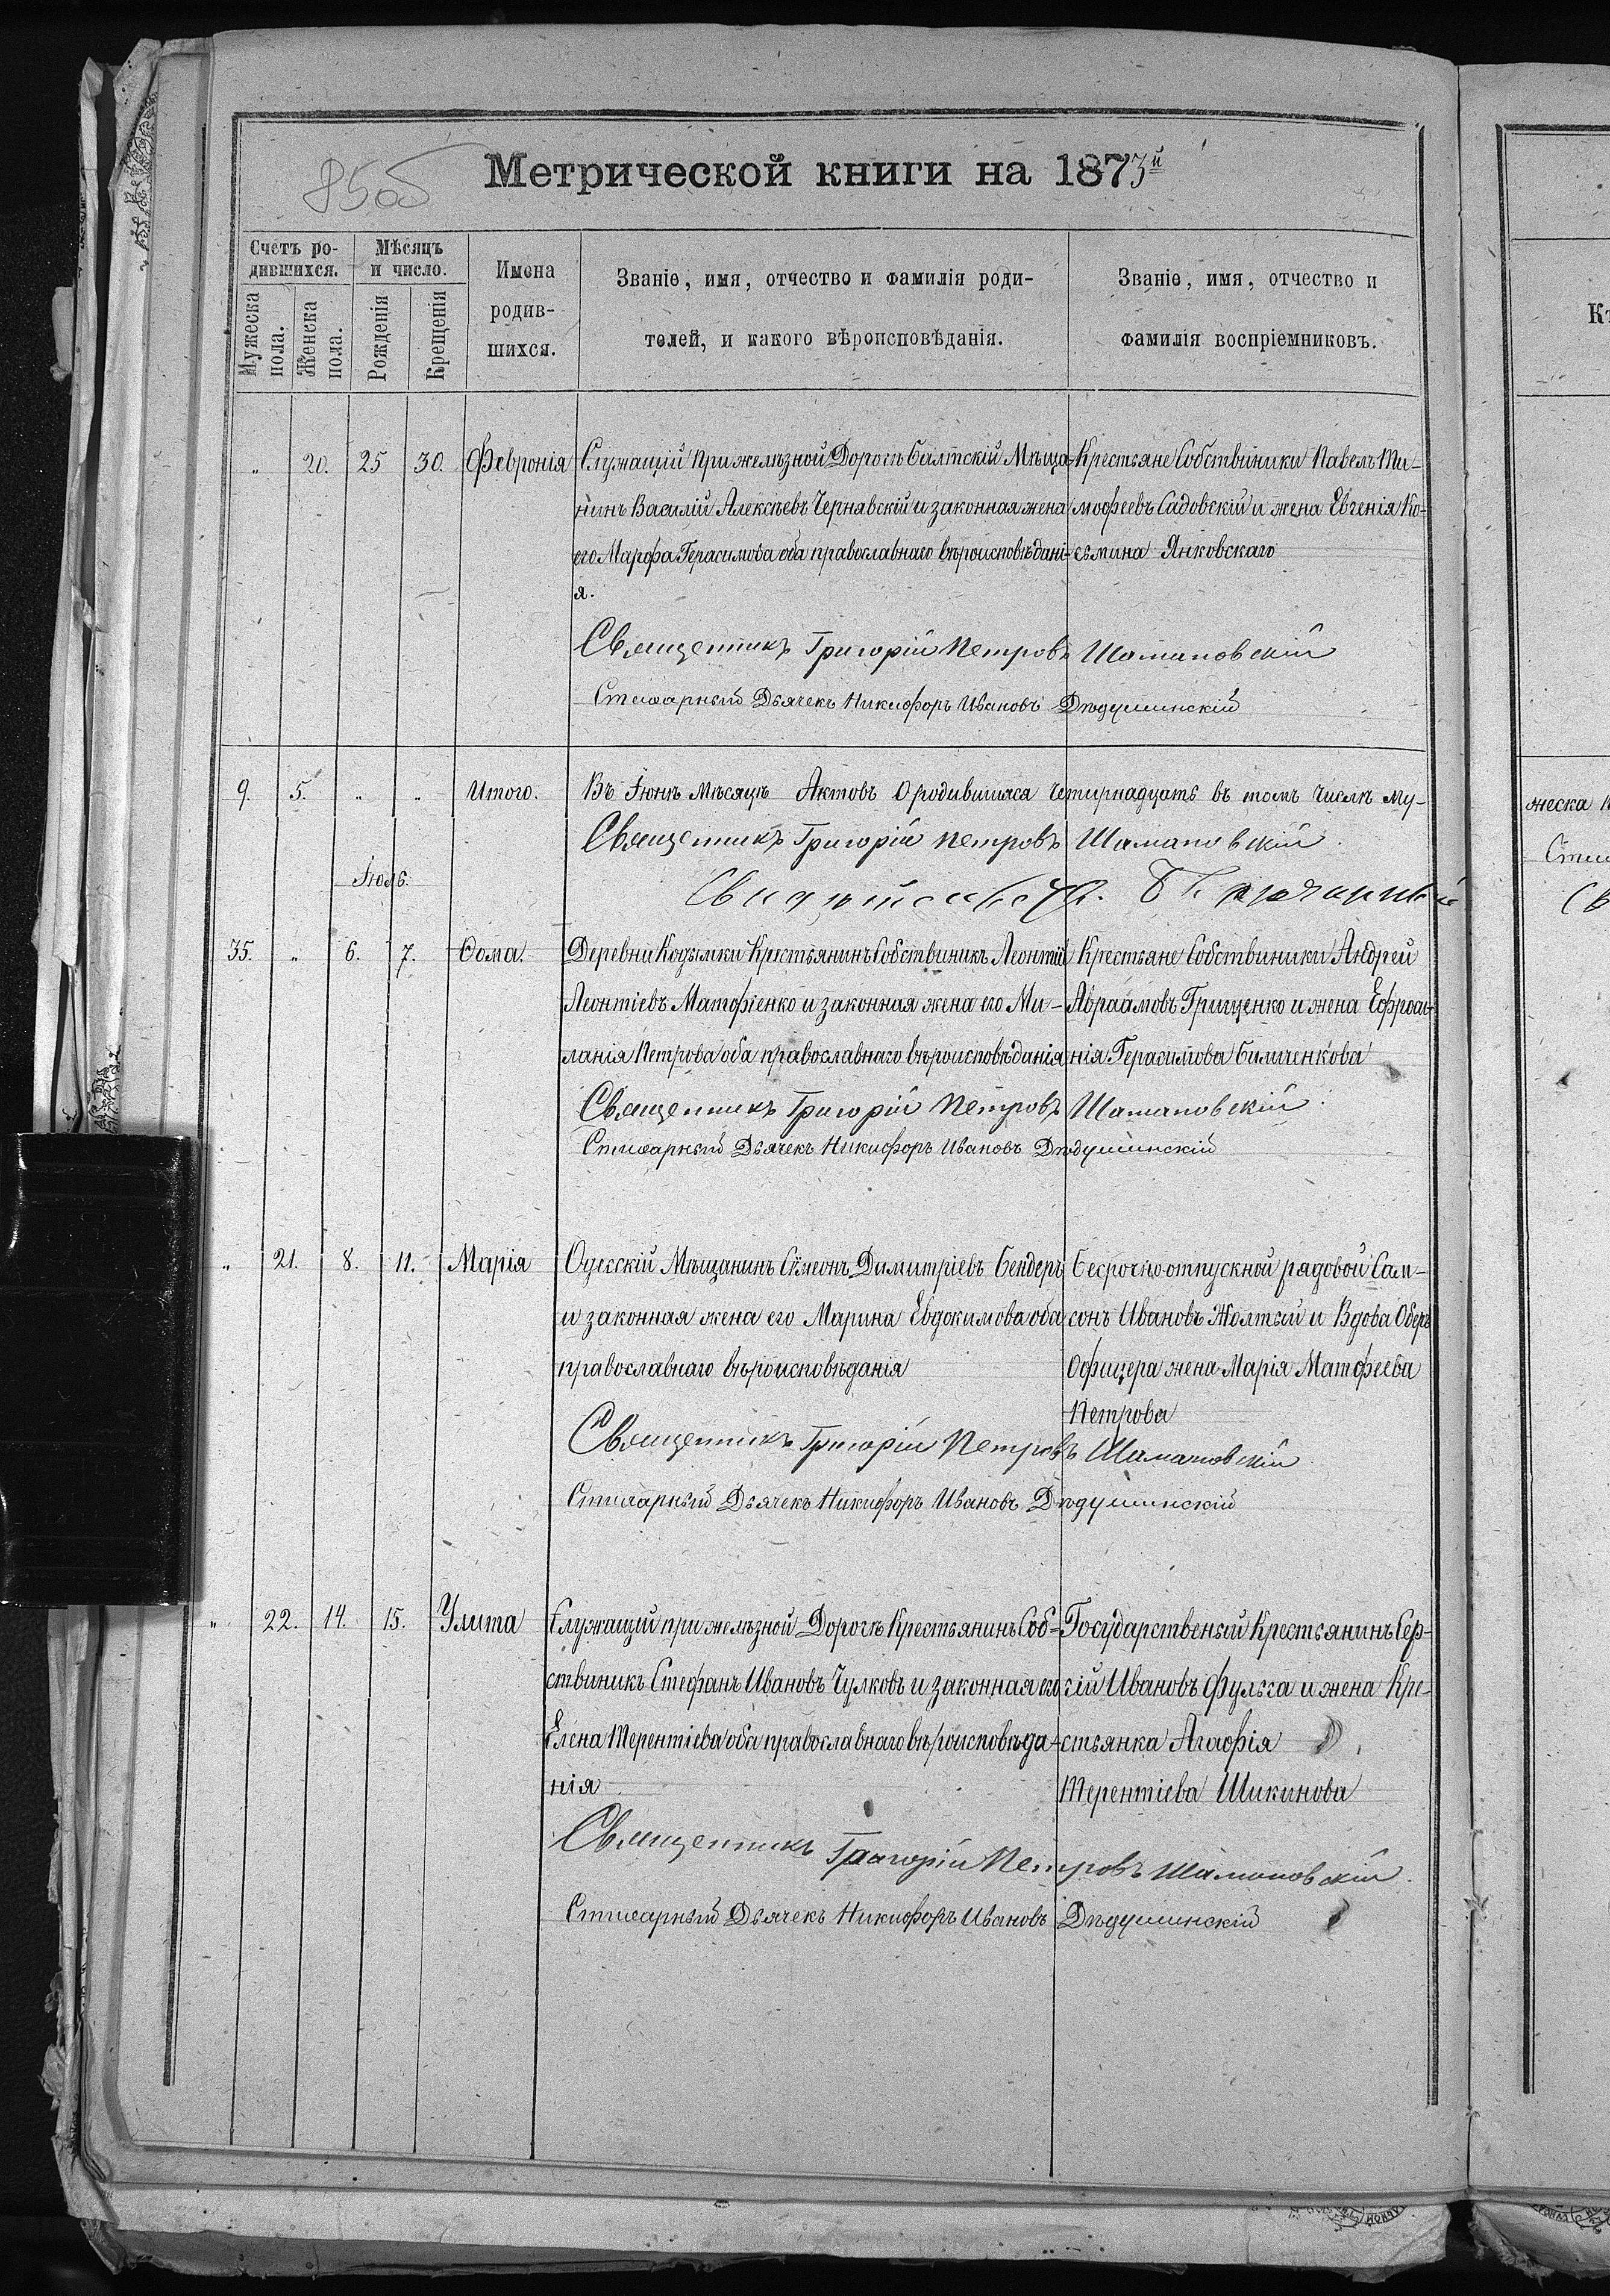 85об
Метрической книги на 1873й
Счетъ ро-
дившихся.
Мѣсяцъ
и число.
Мужеска
пола.
Женска
пола.
Рожденія
Крещенія
Имена
родив-
шихся.
Званіе, имя, отчество и фамилія роди-
телей, и какого вѣроисповѣданія.
Званіе, имя, отчество и
фамилія воспріемниковъ.
„ 20. 25 30. Февронія Служащій при желѣзной Дорогѣ Балтскій Мѣща- Крестьяне Собствиники Павелъ Ти-
нинъ Василій Алексѣевъ Чернявскій и законная жена мофеевъ Садовскій и жена Евгенія Ко-
его Марфа Герасимова оба православнаго вѣроисповѣдані- сьмина Янковскаго
я.
Священникъ Григорій Петровъ Шамановскій
Стихарный Дьячекъ Никифоръ Ивановъ Дѣдушинскій
9. 5. „ „ Итого. Въ Іюнѣ Мѣсяцѣ Актовъ О родившихся четырнадцать въ томъ числѣ му-
Священникъ Григорій Петровъ Шамановскій.
Іюль.
35. „ 6. 7. Ѳома. Деревни Кодымки Крестьянинъ Собствиникъ Леонтій Крестьяне Собствиники Андрей
Леонтіевъ Матфіенко и законная жена его Ми- Авраамовъ Грищенко и жена Ефроси-
ланія Петрова оба православнаго вѣроисповѣданія нія Герасимова Биличенкова
Священникъ Григорій Петровъ Шамановскій.
Стихарный Дьячекъ Никифоръ Ивановъ Дѣдушинскій
„ 21. 8. 11. Марія Одесскій Мѣщанинъ Сѵмеонъ Димитріевъ Бендеръ Бесрочно-отпускной рядовой Сам-
и законная жена его Марина Евдокимова оба сонъ Ивановъ Жолтый и Вдова Оберъ
православнаго вѣроисповѣданія Офицера жена Марія Матфеева
Петрова
Священникъ Григорій Петровъ Шамановскій
Стихарный Дьячекъ Никифоръ Ивановъ Дѣдушинскій
„ 22. 14. 15. Улита Служащий при желѣзной Дорогѣ Крестьянинъ Соб- Государственый Крестьянинъ Сер-
ствиникъ Стефанъ Ивановъ Чулковъ и законная его гій Ивановъ Фулга и жена Кре-
Елена Терентіева оба православнаго вѣроисповѣда- стьянка Агафія
нія Терентіева Шикинова
Священникъ Григорій Петровъ Шамановскій.
Стихарный Дьячекъ Никифоръ Ивановъ Дѣдушинскій
жеска